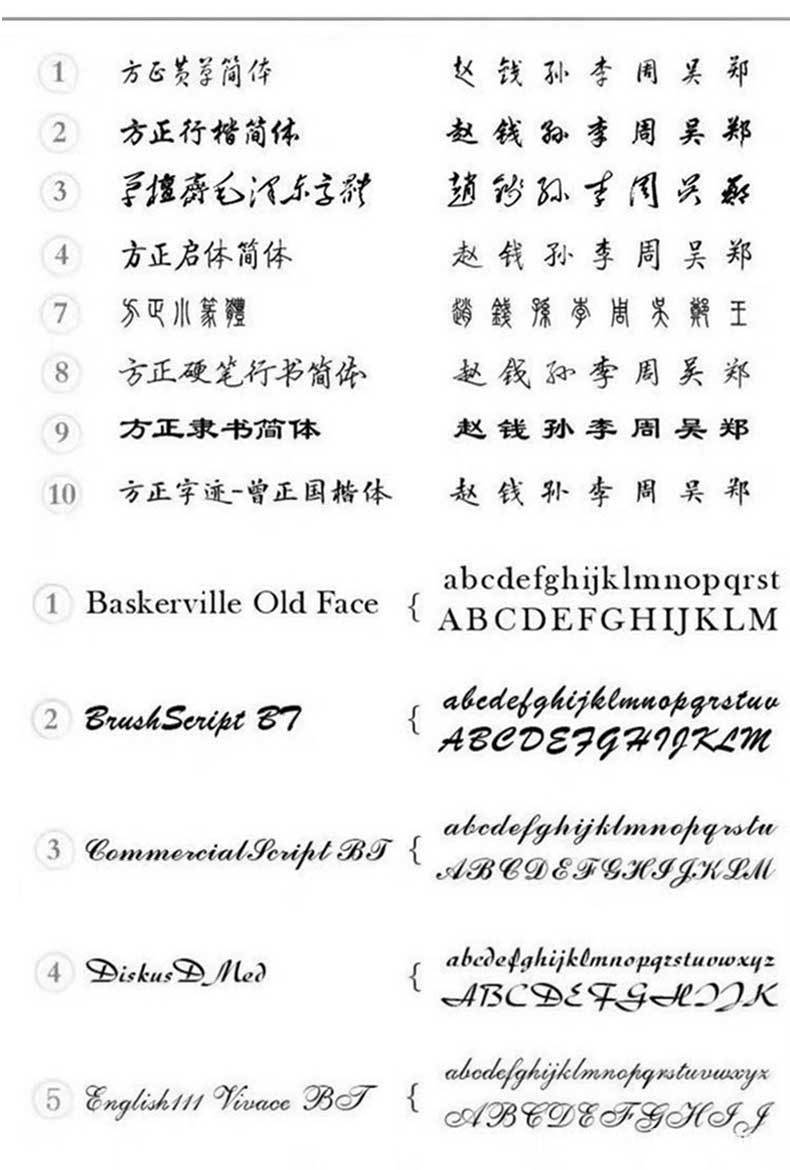 1 方正黄草简体 赵 钱 孙 李 周 吴 郑
2 方正行楷简体 赵 钱 孙 李 周 吴 郑
3 草檀斋毛泽东字体 趙 錢 孙 李 周 吴 鄭
4 方正启体简体 赵 钱 孙 李 周 吴 郑
7 方正小篆體 趙 錢 孫 李 周 吳 鄭 王
8 方正硬笔行书简体 赵 钱 孙 李 周 吴 郑
9 方正隶书简体 赵 钱 孙 李 周 吴 郑
10 方正字迹-曾正国楷体 赵 钱 孙 李 周 吴 郑
abcdefghijklmnopqrst
1 Baskerville Old Face {
ABCDEFGHIJKLM
abcdefghijklmnopqrstuv
2 BrushScript BT {
ABCDEFGHIJKLM
abcdefghijklmnopqrstu
3 CommercialScript BT {
ABCDEFGHIJKLM
abcdefghijklmnopqrstuvwxyz
4 DiskusDMed {
ABCDEFGHIJK
abcdefghijklmnopqrstuvwxyz
5 English111 Vivace BT {
ABCDEFGHIJ